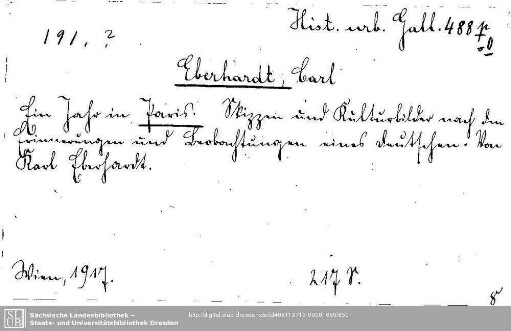 191. ?
Hist. urb. Gall. 488 p
Eberhardt, Carl
Ein Jahr in Paris. Skizzen und Kulturbilder nach den
Erinnerungen und Beobachtungen eines Deutschen. Von
Karl Eberhardt.
Wien, 1917.
217 S.
8°
SLUB
Sächsische Landesbibliothek –
Staats- und Universitätsbibliothek Dresden